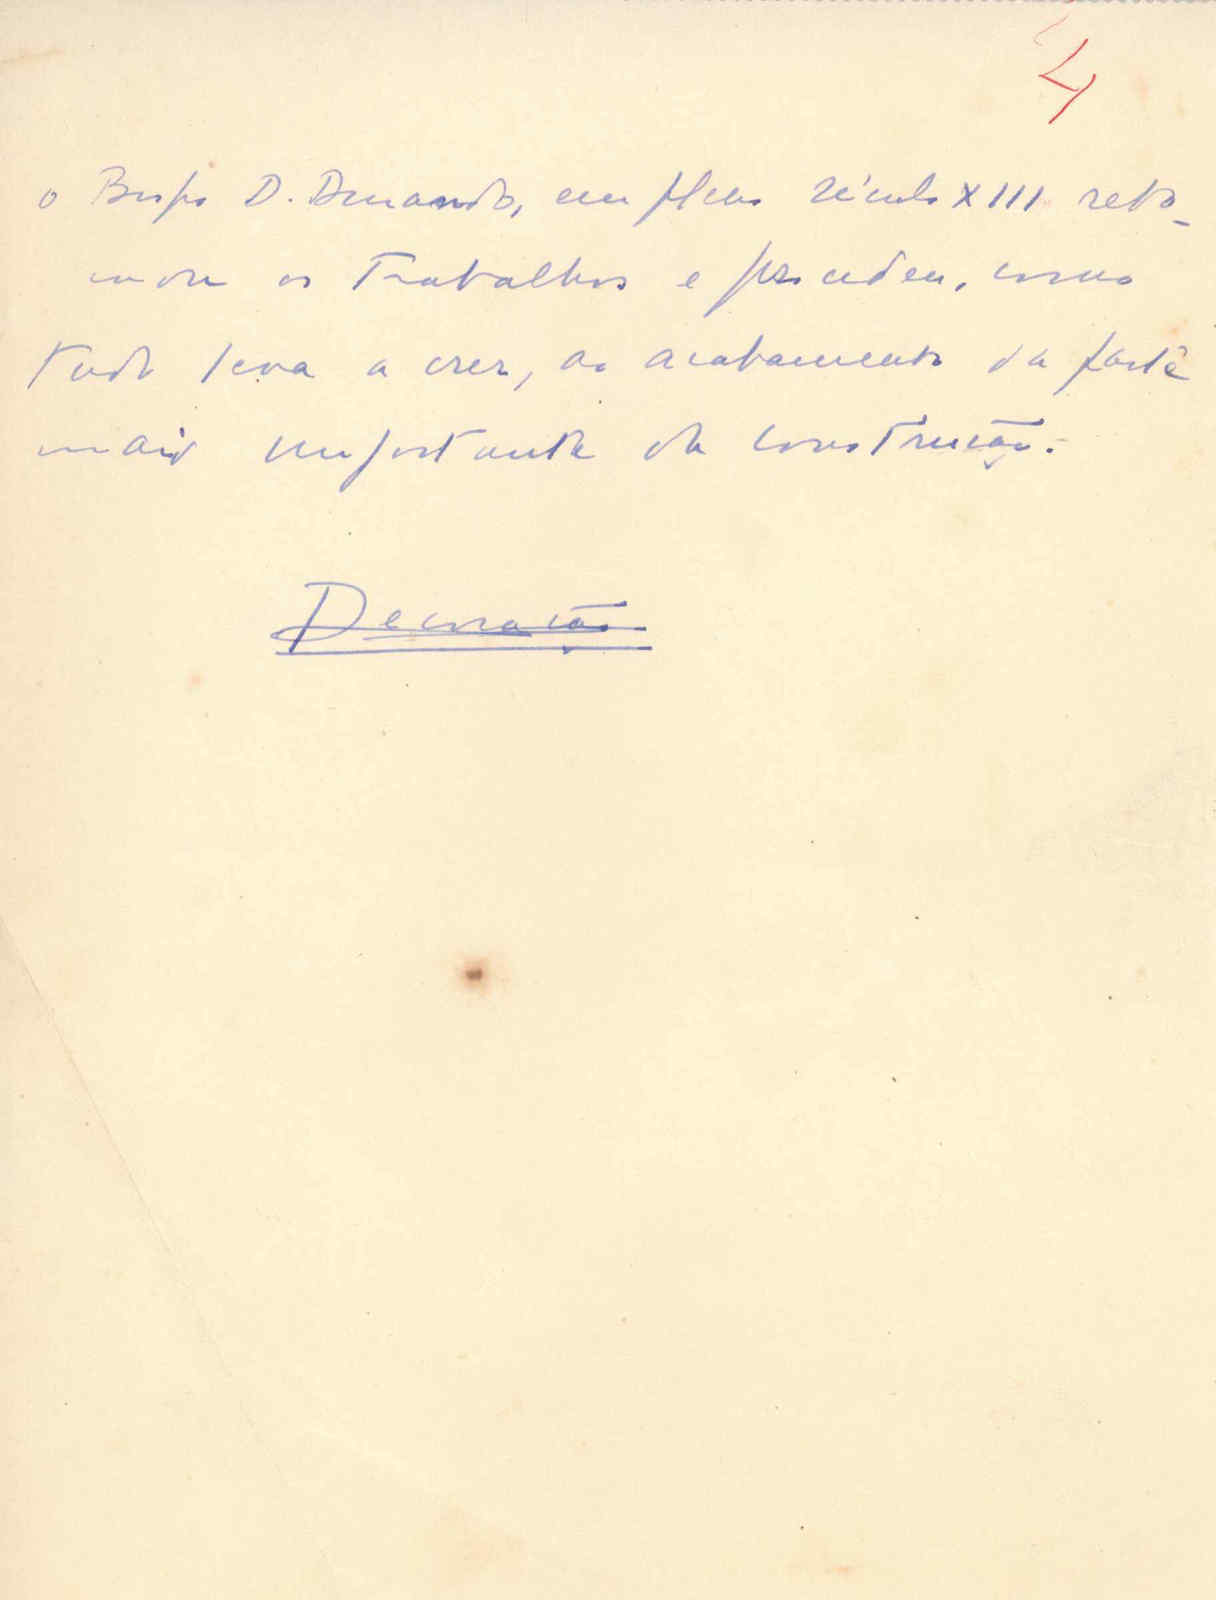 4
o Bispo D. Durando, em pleno século XIII reto-
mou os trabalhos e procedeu, como
tudo leva a crer, ao acabamento da parte
mais importante da construção.
Decoração